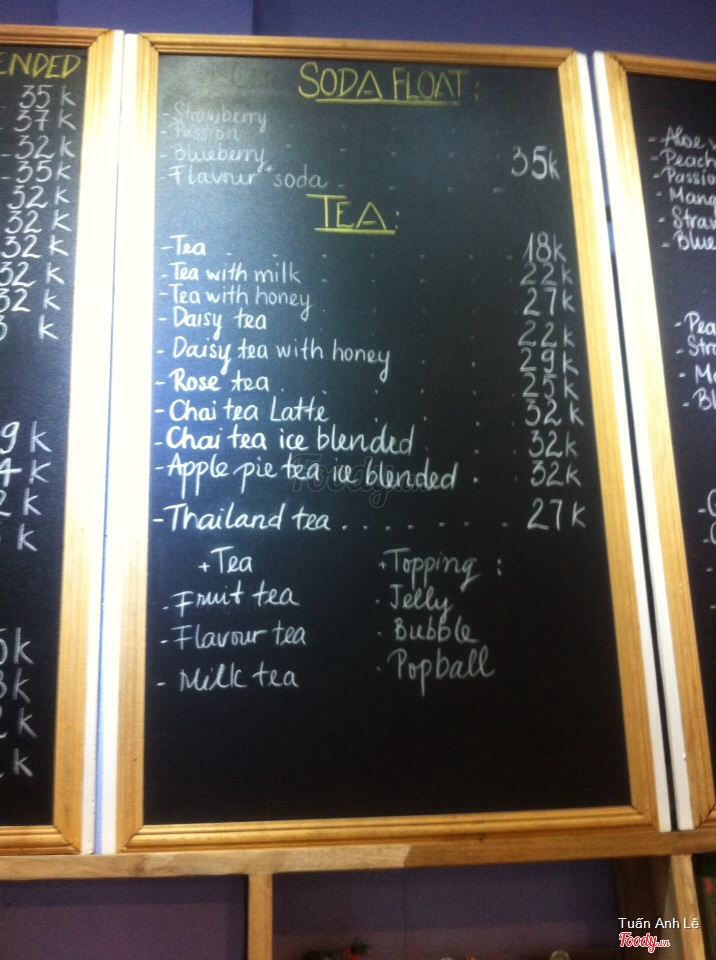 ENDED
35 k
37 k
32 k
35 k
32 k
32 k
32 k
32 k
32 k
k
9 k
4 k
2 k
k
k
k
k
k
SODA FLOAT:
- Strawberry
- Passion
- Blueberry
- Flavour soda 35k
TEA:
- Tea 18k
- Tea with milk 22k
- Tea with honey 27k
- Daisy tea 22k
- Daisy tea with honey 29k
- Rose tea 25k
- Chai tea Latte 32k
- Chai tea ice blended 32k
- Apple pie tea ice blended 32k
- Thailand tea . . . . . . . 27k
+ Tea + Topping :
- Fruit tea . Jelly
- Flavour tea . Bubble
- Milk tea . Popball
- Aloe
- Peach
- Passio
- Mang
- Straw
- Blue
- Pea
- Stra
- Ma
- Bl
Foody.vn
Tuấn Anh Lê
Foody.vn